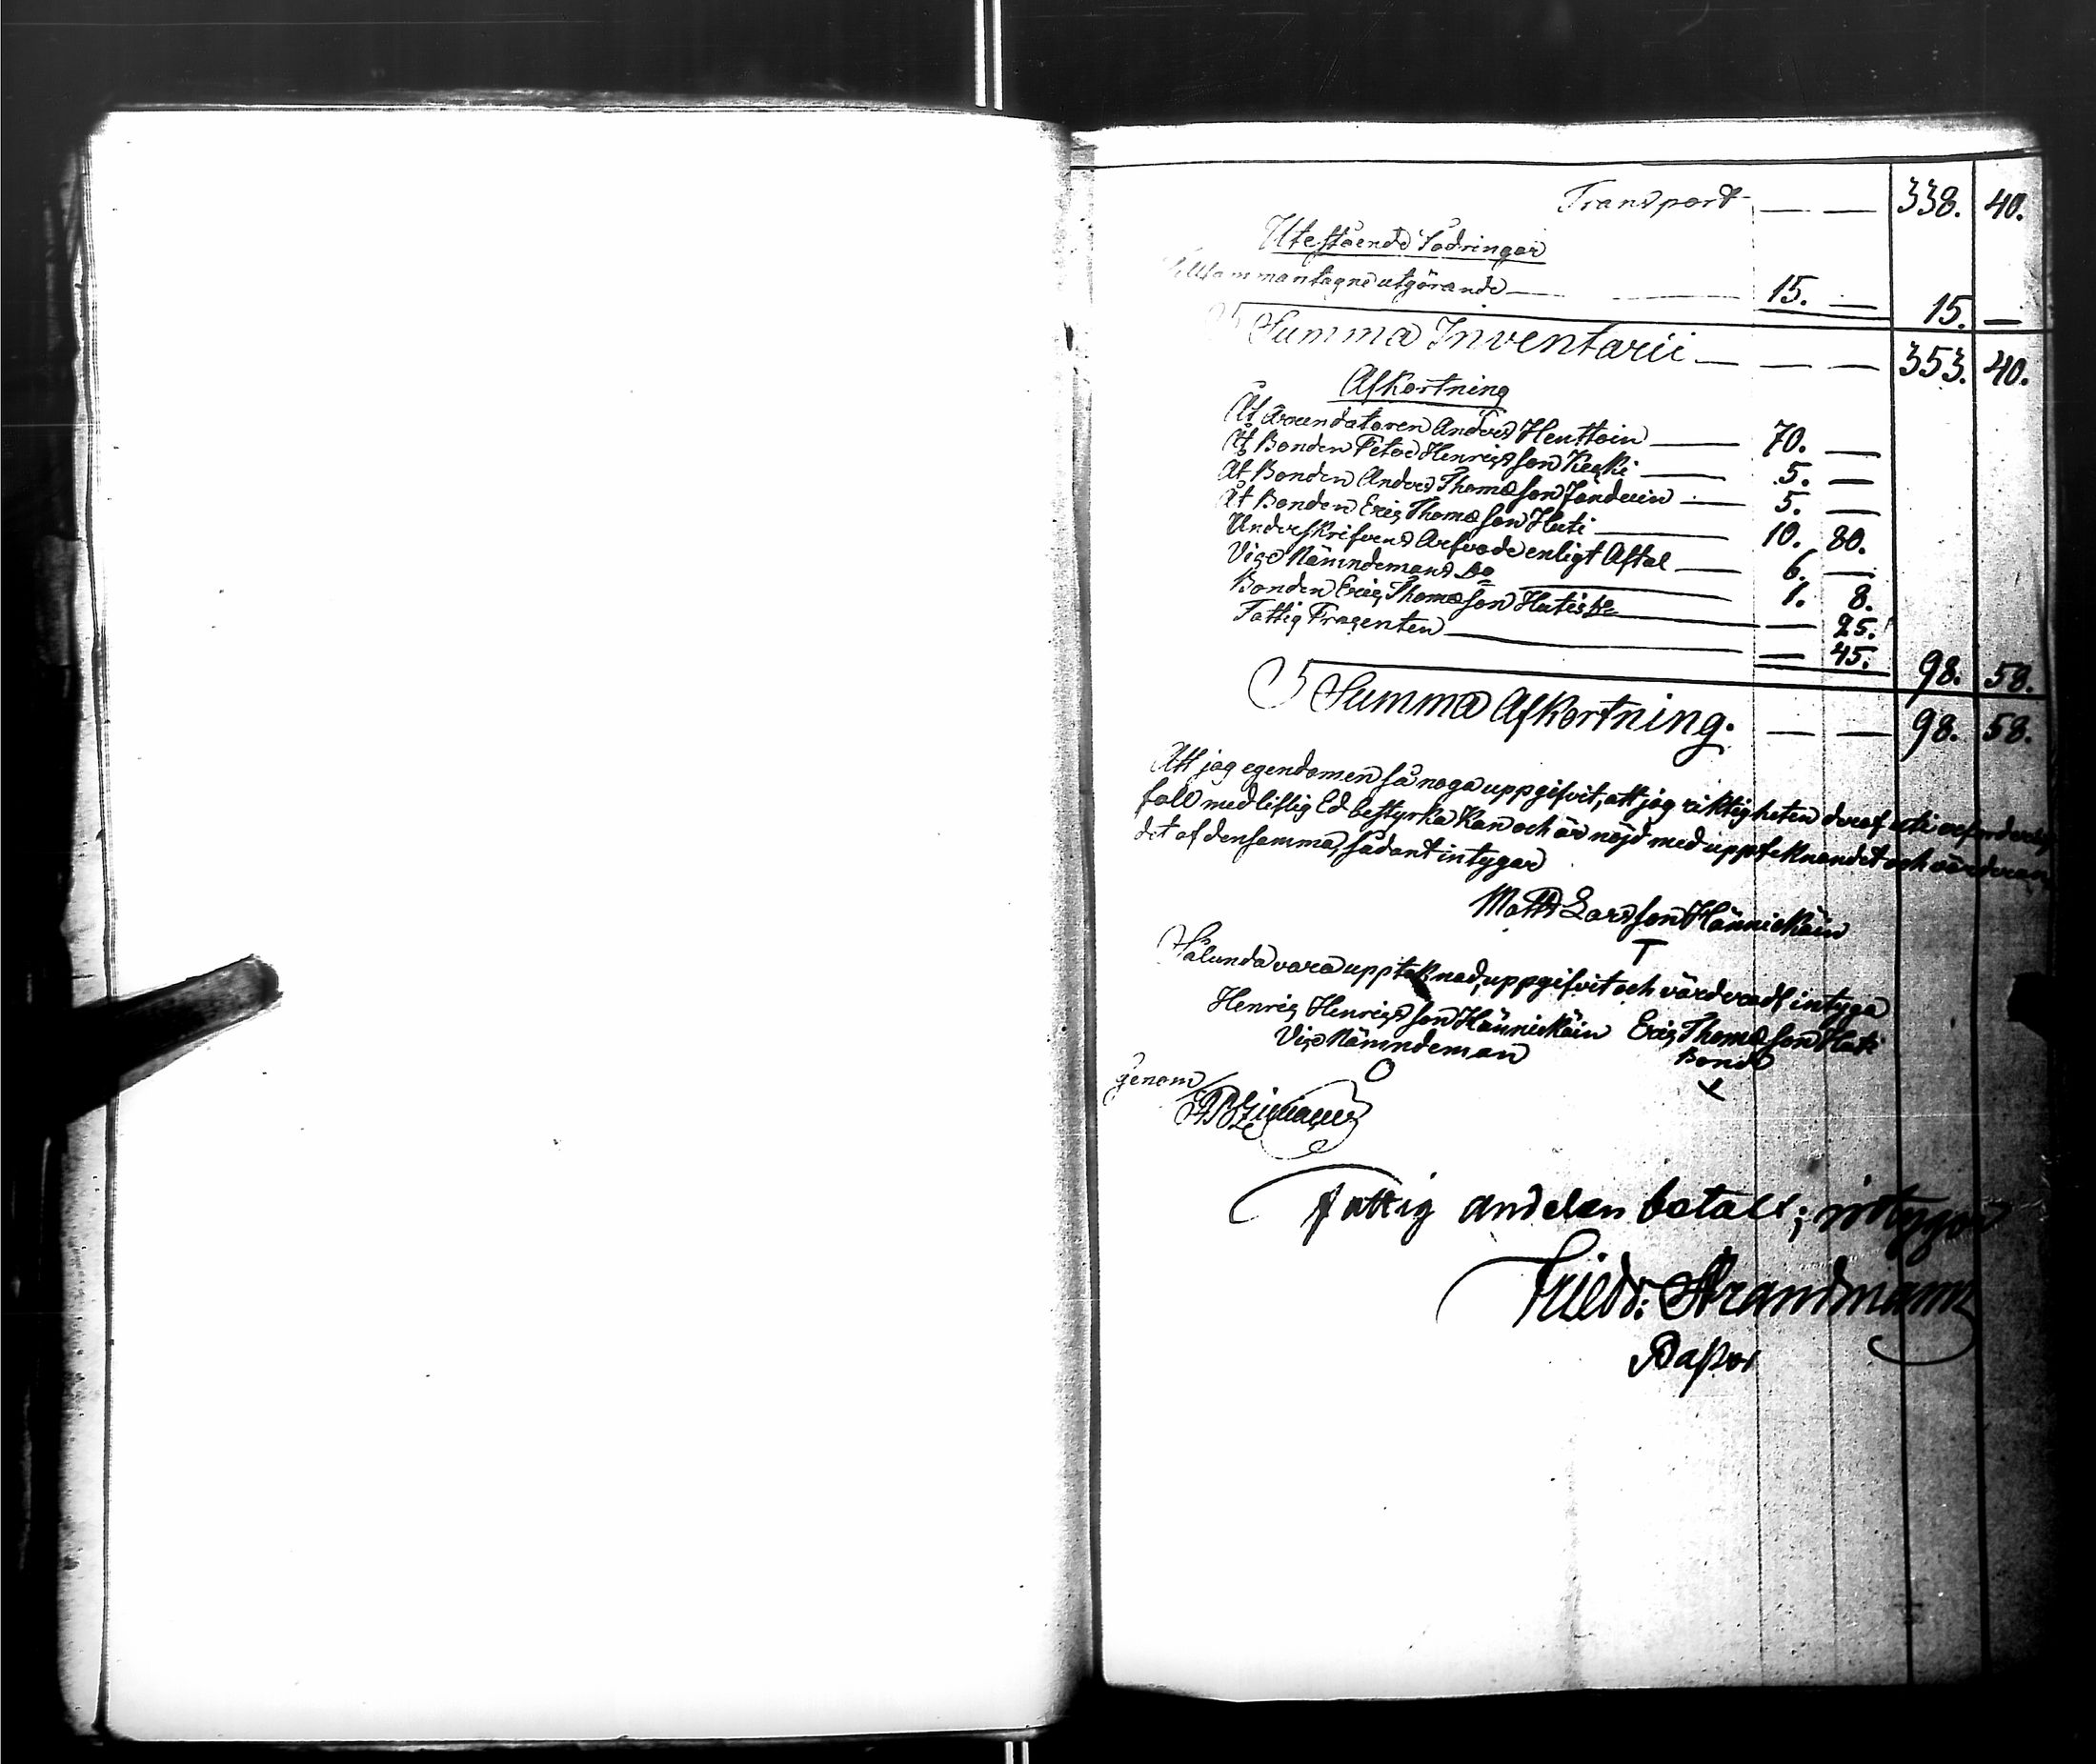 Transport — — 338. 40.
Utestående Fodringar
tillsammantagne utgörande — 15. — 15. —
Summa Inventarii — — — 353. 40.
Afkortning
Åt Arrendatoren Anders Henttoin — 70. —
Åt Bonden Petter Henricsson Kecki — 5. —
Åt Bonden Anders Thomæsson — 5. —
Åt Bonden Eric Thomæsson Huti — 10. 80.
Underskrifvens Arfvode enligt Aftal — 6. —
Vice Nämndemans Do — 1. 8.
Bonden Eric Thomæsson Hutis Do — 25.
Fattig Procenten — — 45. 98. 58.
Summa Afkortning. — — 98. 58.
Att jag egendomen så noga uppgifvit, att jag riktigheten deraf
fall med liflig Ed bestyrka kan och är nöjd med uppteknandet och värderan
det af densamma, sådant intygar
Matts Larsson Hännickäin
T
Sålunda vara uppteknad, uppgifvit och värderadt intyga
Henric Henricsson Hännickäin Eric Thomæsson Huti
Vice Nämndeman Bonde
O x
genom
Fattig andelen betald; intygar
Friedr: Strandmann
Pastor